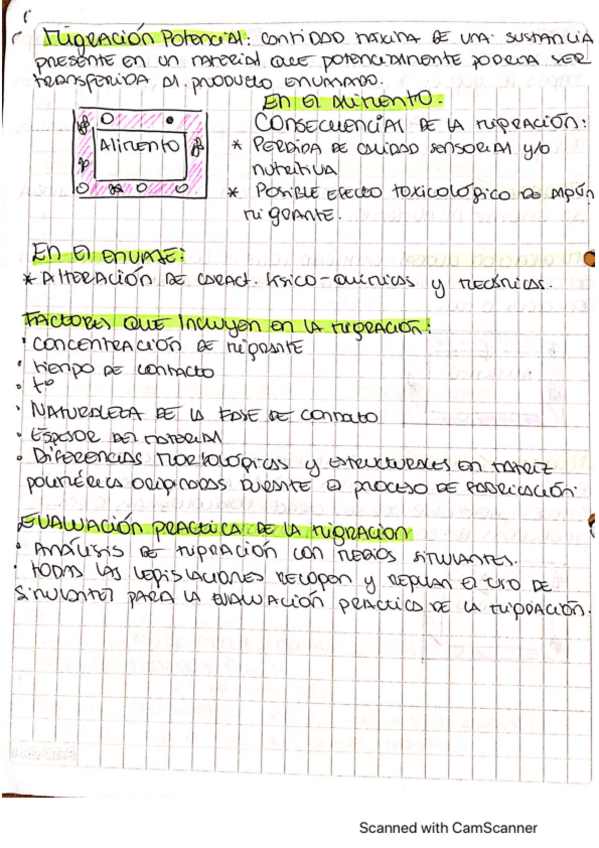 Migración Potencial: cantidad maxima de una sustancia
presente en un material que potencialmente podria ser
transferida al producto envasado.
En el alimento.
Consecuencias de la migración:
Alimento
* Perdida de calidad sensorial y/o
nutritiva
* Posible efecto toxicológico de algún
migrante.
En el envase:
* Alteración de caract. fisico-químicas y mecánicas.
Factores que incluyen en la migración:
• Concentración de migrante
• tiempo de contacto
• tº
• Naturaleza de la fase de contacto
• Espesor del material
• Diferencias morfológicas y estructurales en matriz
polimérica originadas durante el proceso de fabricación.
Evaluación practica de la migracion
• Análisis de migración con medios simulantes.
• todas las legislaciones recogen y regulan el uso de
simulantes para la evaluación practica de la migración.
Scanned with CamScanner